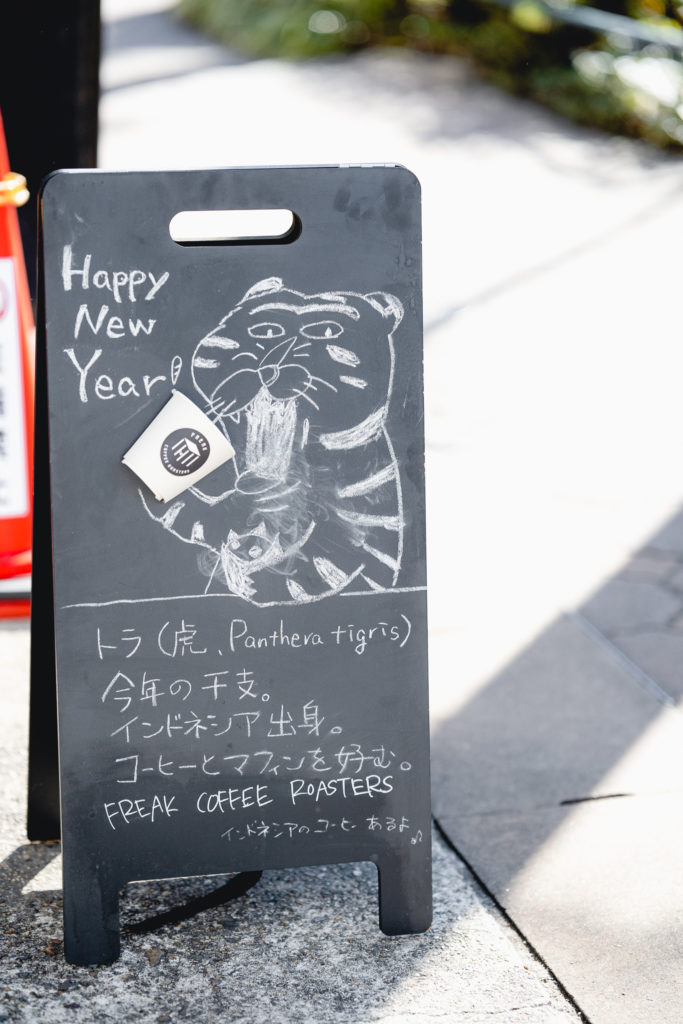 Happy
New
Year!
トラ(虎、Panthera tigris)
今年の干支。
インドネシア出身。
コーヒーとマフィンを好む。
FREAK COFFEE ROASTERS
インドネシアのコーヒーあるよ♪